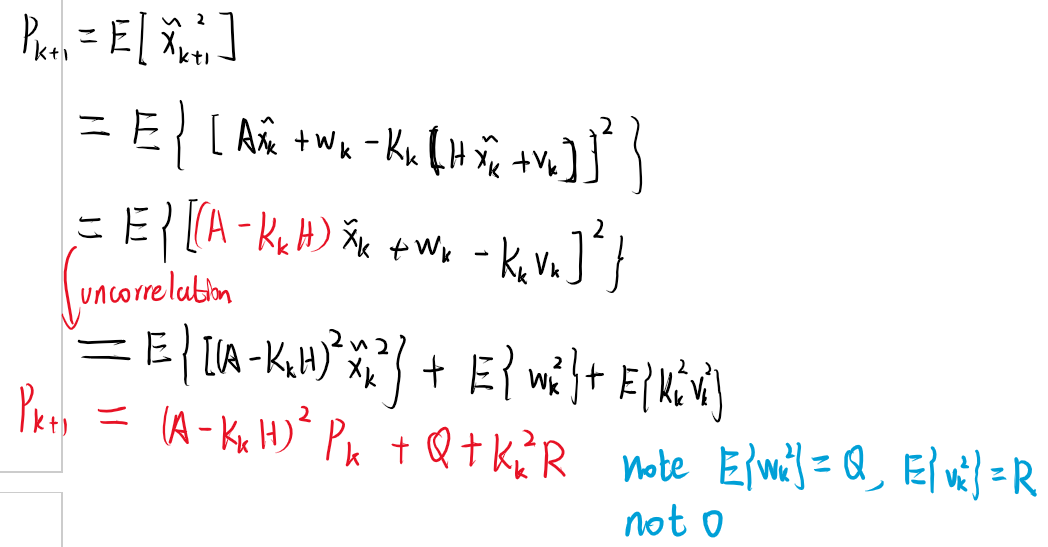 P_{k+1} = E[ x̃_{k+1}^2 ]
= E { [ Ax̃_k + w_k - K_k [H x̃_k + v_k] ]^2 }
= E { [(A - K_k H) x̃_k + w_k - K_k v_k ]^2 }
uncorrelation
= E { [(A - K_k H)^2 x̃_k^2 } + E { w_k^2 } + E { K_k^2 v_k^2 }
P_{k+1} = (A - K_k H)^2 P_k + Q + K_k^2 R
note E{w_k^2} = Q, E{v_k^2} = R
not 0